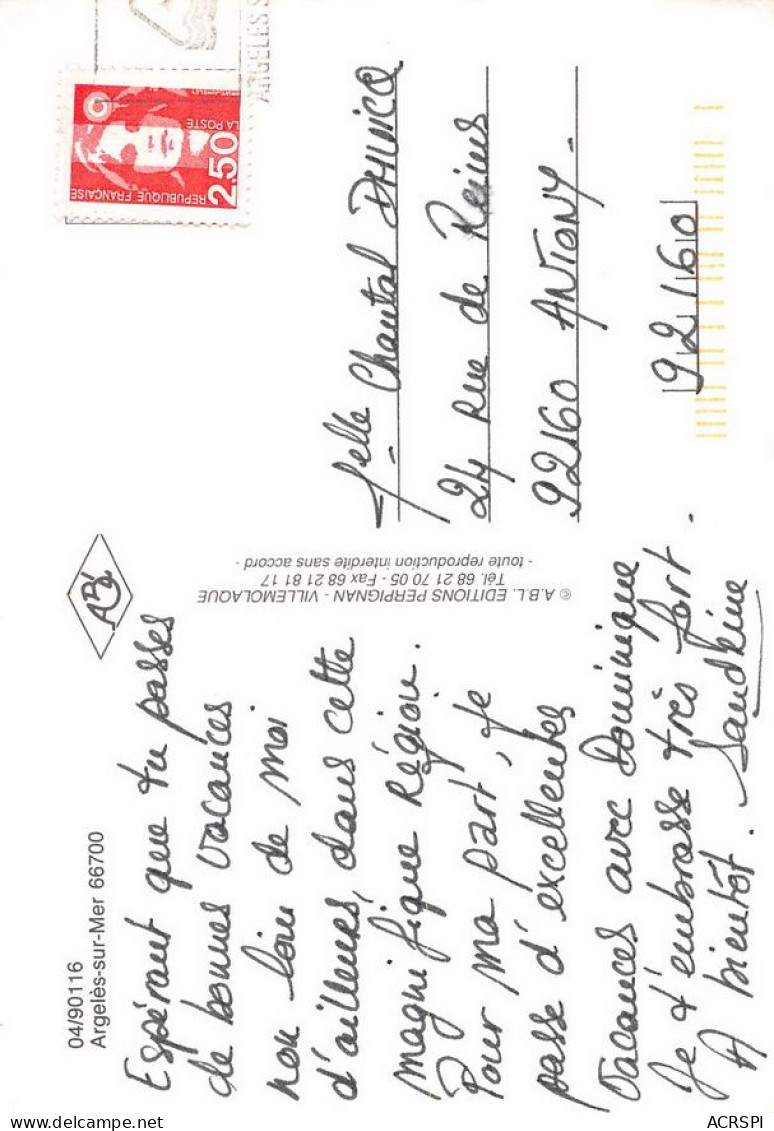 04/90116
Argelès-sur-Mer 66700
Espérant que tu passes
de bonnes vacances
non loin de moi
d'ailleurs, dans cette
magnifique Région.
Pour ma part, je
passe d'excellentes
vacances avec Dominique
Je t'embrasse très fort.
A bientôt. Sandrine
ABL
© A.B.L. EDITIONS PERPIGNAN - VILLEMOLAQUE
Tél. 68 21 70 05 - Fax 68 21 81 17
- toute reproduction interdite sans accord -
ARGELES S
2,50
LA POSTE
REPUBLIQUE FRANÇAISE
Chantal
24 Rue de Reims
92160 ANTONY-
92160
ACRSPI